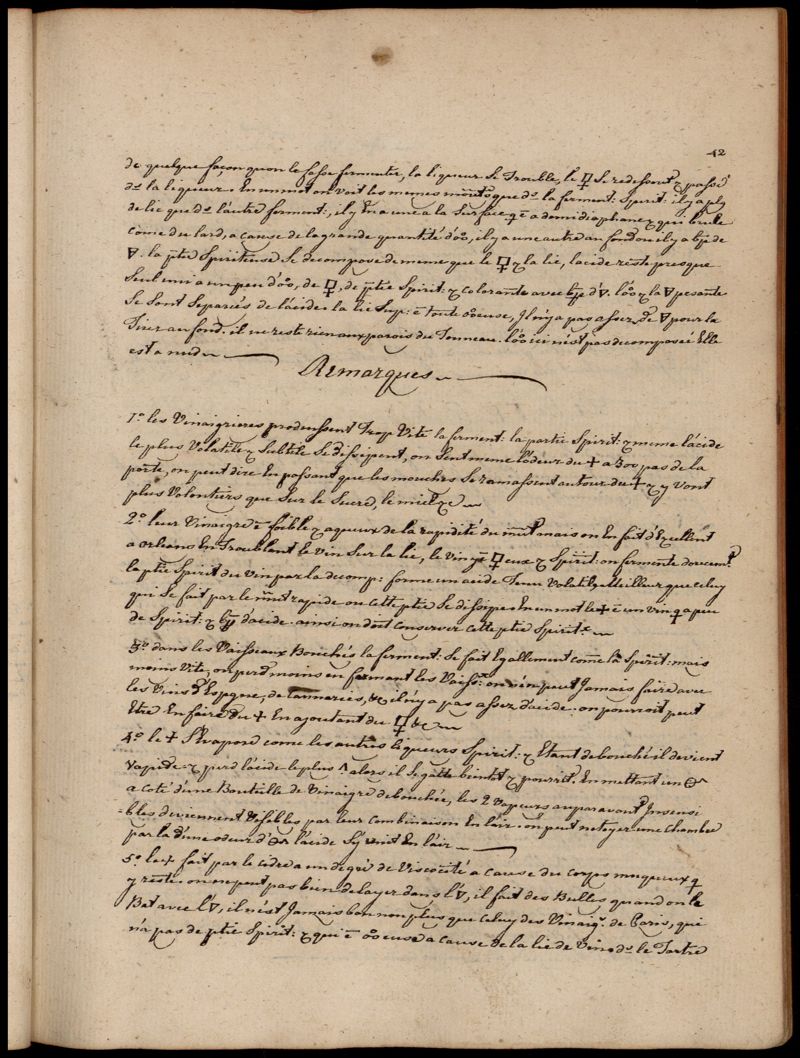 42
de quelque façon quon le fasse fermenter, la liqueur se Trouble, le 🜿 se redessout & passe
ds la liqueur. En un mot on voit les memes que ds la ferment: Spirit: il y a plq
de lie que ds l'autre ferment:, il y En a une a la Surface q ē a demi diaphane & qui brule
come du lard, a cause de la grande quantité d'oo, il y a une autre au fond ou il y a bp de
🜄. la ptie Spiriteuse Se decompose de meme que le 🜿 & la lie, lacide reste presque
Seul uni a un peu d'oo, de 🜿, de ptie Spirit: & colorante avec bp d'🜄. l'oo & la 🜃 pesante
Se Sont Separés de lacide. la lie Sup: ē toute ooeuse, Il n'y a pas assez de 🜃 pour la
Tirer au fond. il ne reste rien aux parois du Tonneau. l'oo ici n'est pas decomposée Elle
est a nud
Remarques
1.o les Vinaigrieres produissent Trop Vite la ferment: la partie Spirit: & meme lacide
le plus Volatile & Subtile Se dissipent, on Sent meme l'odeur du 🜊 a 300 pas de la
porte, on peut dire En passant que les mouches Se ramassent autour du 🜊 & y vont
plus Volontiers que Sur le Sucre, le miel &c
2.o leur Vinaigre ē foible & aqueux de la rapidité du mt mais on En fait d'Excellent
a Orleans En Troublant le Vin Sur la lie, le vin ē 🜿eux & Spirit: on fermente doucemt
la ptie Spirit du Vin par la decomp: forme un acide Tenu Volatil & Meilleur que celuy
qui Se fait par le mt rapide ou cette ptie Se dissipe. En un mot le 🜊 ē un vin q a peu
de Spirit: & bp d'acide. ainsi on doit conserver cette ptie Spirit:
3.o dans les Vaisseaux Bouchés la ferment: Se fait Egallement come la Spirit: mais
moins Vite, on perd moins en fermant les Vaiss: on n'en peut Jamais faire avec
les Vins d'Espgne, de Cannaries, &c il n'y a pas assez d'acide. on pourroit peut
Etre En faire du 🜊 En ajoutant du 🜿 &c
4.o le 🜊 S'Evapore come les autres liqueurs Spirit: & Etant debouché il devient
Vapide & perd lacide le plus alors il Se gatte bientot & pourrit. En mettant un
a coté d'une Bouteille de Vinaigre debouchée, les 2 Vapeurs auparavant Insensi
=bles deviennent Visibles par leur Combinaison En l'air. on peut netoyer une Chambre
par la d'une odeur d' lacide S'y unit En l'air
5.o le 🜊 fait par le cidre a un degré de Viscosité a Cause du Corps muqueux q
y reste. on ne peut pas bien delayer dans l'🜄, il fait des Bulles quand on le
Bat avec l'🜄, il n'est Jamais bon non plus que celuy des Vinaig: de Paris, qui
n'a pas de ptie Spirit: & qui ē ooeuse a cause de la lie de Vin. ds le Tartre